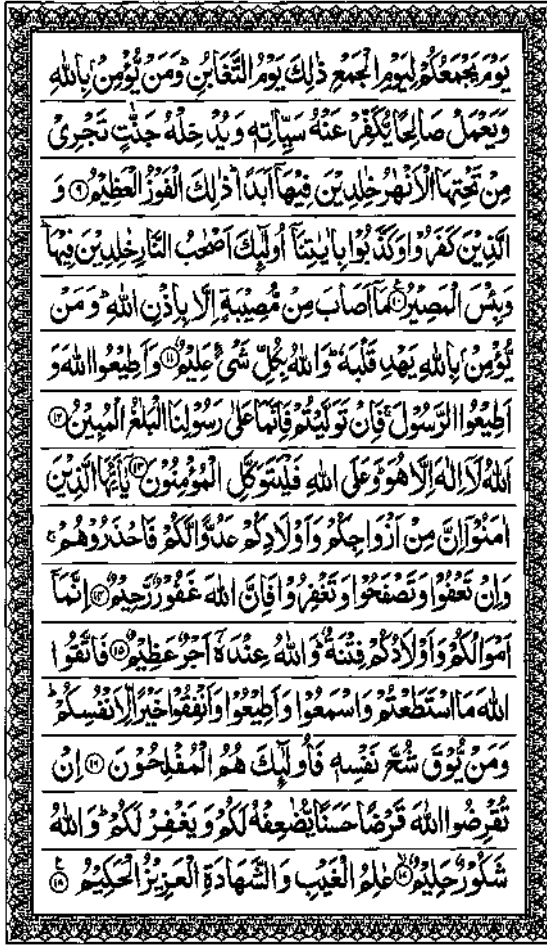 يَوْمَ يَجْمَعُكُمْ لِيَوْمِ الْجَمْعِ ذٰلِكَ يَوْمُ التَّغَابُنِ ؕ وَمَنْ يُّؤْمِنْۢ بِاللّٰهِ
وَيَعْمَلْ صَالِحًا يُّكَفِّرْ عَنْهُ سَيِّاٰتِهٖ وَيُدْخِلْهُ جَنّٰتٍ تَجْرِىْ
مِنْ تَحْتِهَا الْاَنْهٰرُ خٰلِدِيْنَ فِيْهَاۤ اَبَدًا ؕ ذٰلِكَ الْفَوْزُ الْعَظِيْمُ ۝۹ وَ
الَّذِيْنَ كَفَرُوْا وَكَذَّبُوْا بِاٰيٰتِنَاۤ اُولٰٓئِكَ اَصْحٰبُ النَّارِ خٰلِدِيْنَ فِيْهَا ؕ
وَبِئْسَ الْمَصِيْرُ ۝۱۰ مَاۤ اَصَابَ مِنْ مُّصِيْبَةٍ اِلَّا بِاِذْنِ اللّٰهِ ؕ وَمَنْ
يُّؤْمِنْۢ بِاللّٰهِ يَهْدِ قَلْبَهٗ ؕ وَاللّٰهُ بِكُلِّ شَىْءٍ عَلِيْمٌ ۝۱۱ وَاَطِيْعُوا اللّٰهَ وَ
اَطِيْعُوا الرَّسُوْلَ ۚ فَاِنْ تَوَلَّيْتُمْ فَاِنَّمَا عَلٰى رَسُوْلِنَا الْبَلٰغُ الْمُبِيْنُ ۝۱۲
اَللّٰهُ لَاۤ اِلٰهَ اِلَّا هُوَ ؕ وَعَلَى اللّٰهِ فَلْيَتَوَكَّلِ الْمُؤْمِنُوْنَ ۝۱۳ يٰۤاَيُّهَا الَّذِيْنَ
اٰمَنُوْۤا اِنَّ مِنْ اَزْوَاجِكُمْ وَاَوْلَادِكُمْ عَدُوًّا لَّكُمْ فَاحْذَرُوْهُمْ ۚ
وَاِنْ تَعْفُوْا وَتَصْفَحُوْا وَتَغْفِرُوْا فَاِنَّ اللّٰهَ غَفُوْرٌ رَّحِيْمٌ ۝۱۴ اِنَّمَاۤ
اَمْوَالُكُمْ وَاَوْلَادُكُمْ فِتْنَةٌ ؕ وَاللّٰهُ عِنْدَهٗۤ اَجْرٌ عَظِيْمٌ ۝۱۵ فَاتَّقُوا
اللّٰهَ مَا اسْتَطَعْتُمْ وَاسْمَعُوْا وَاَطِيْعُوْا وَاَنْفِقُوْا خَيْرًا لِّاَنْفُسِكُمْ ؕ
وَمَنْ يُّوْقَ شُحَّ نَفْسِهٖ فَاُولٰٓئِكَ هُمُ الْمُفْلِحُوْنَ ۝۱۶ اِنْ
تُقْرِضُوا اللّٰهَ قَرْضًا حَسَنًا يُّضٰعِفْهُ لَكُمْ وَيَغْفِرْ لَكُمْ ؕ وَاللّٰهُ
شَكُوْرٌ حَلِيْمٌ ۝۱۷ عٰلِمُ الْغَيْبِ وَالشَّهَادَةِ الْعَزِيْزُ الْحَكِيْمُ ۝۱۸